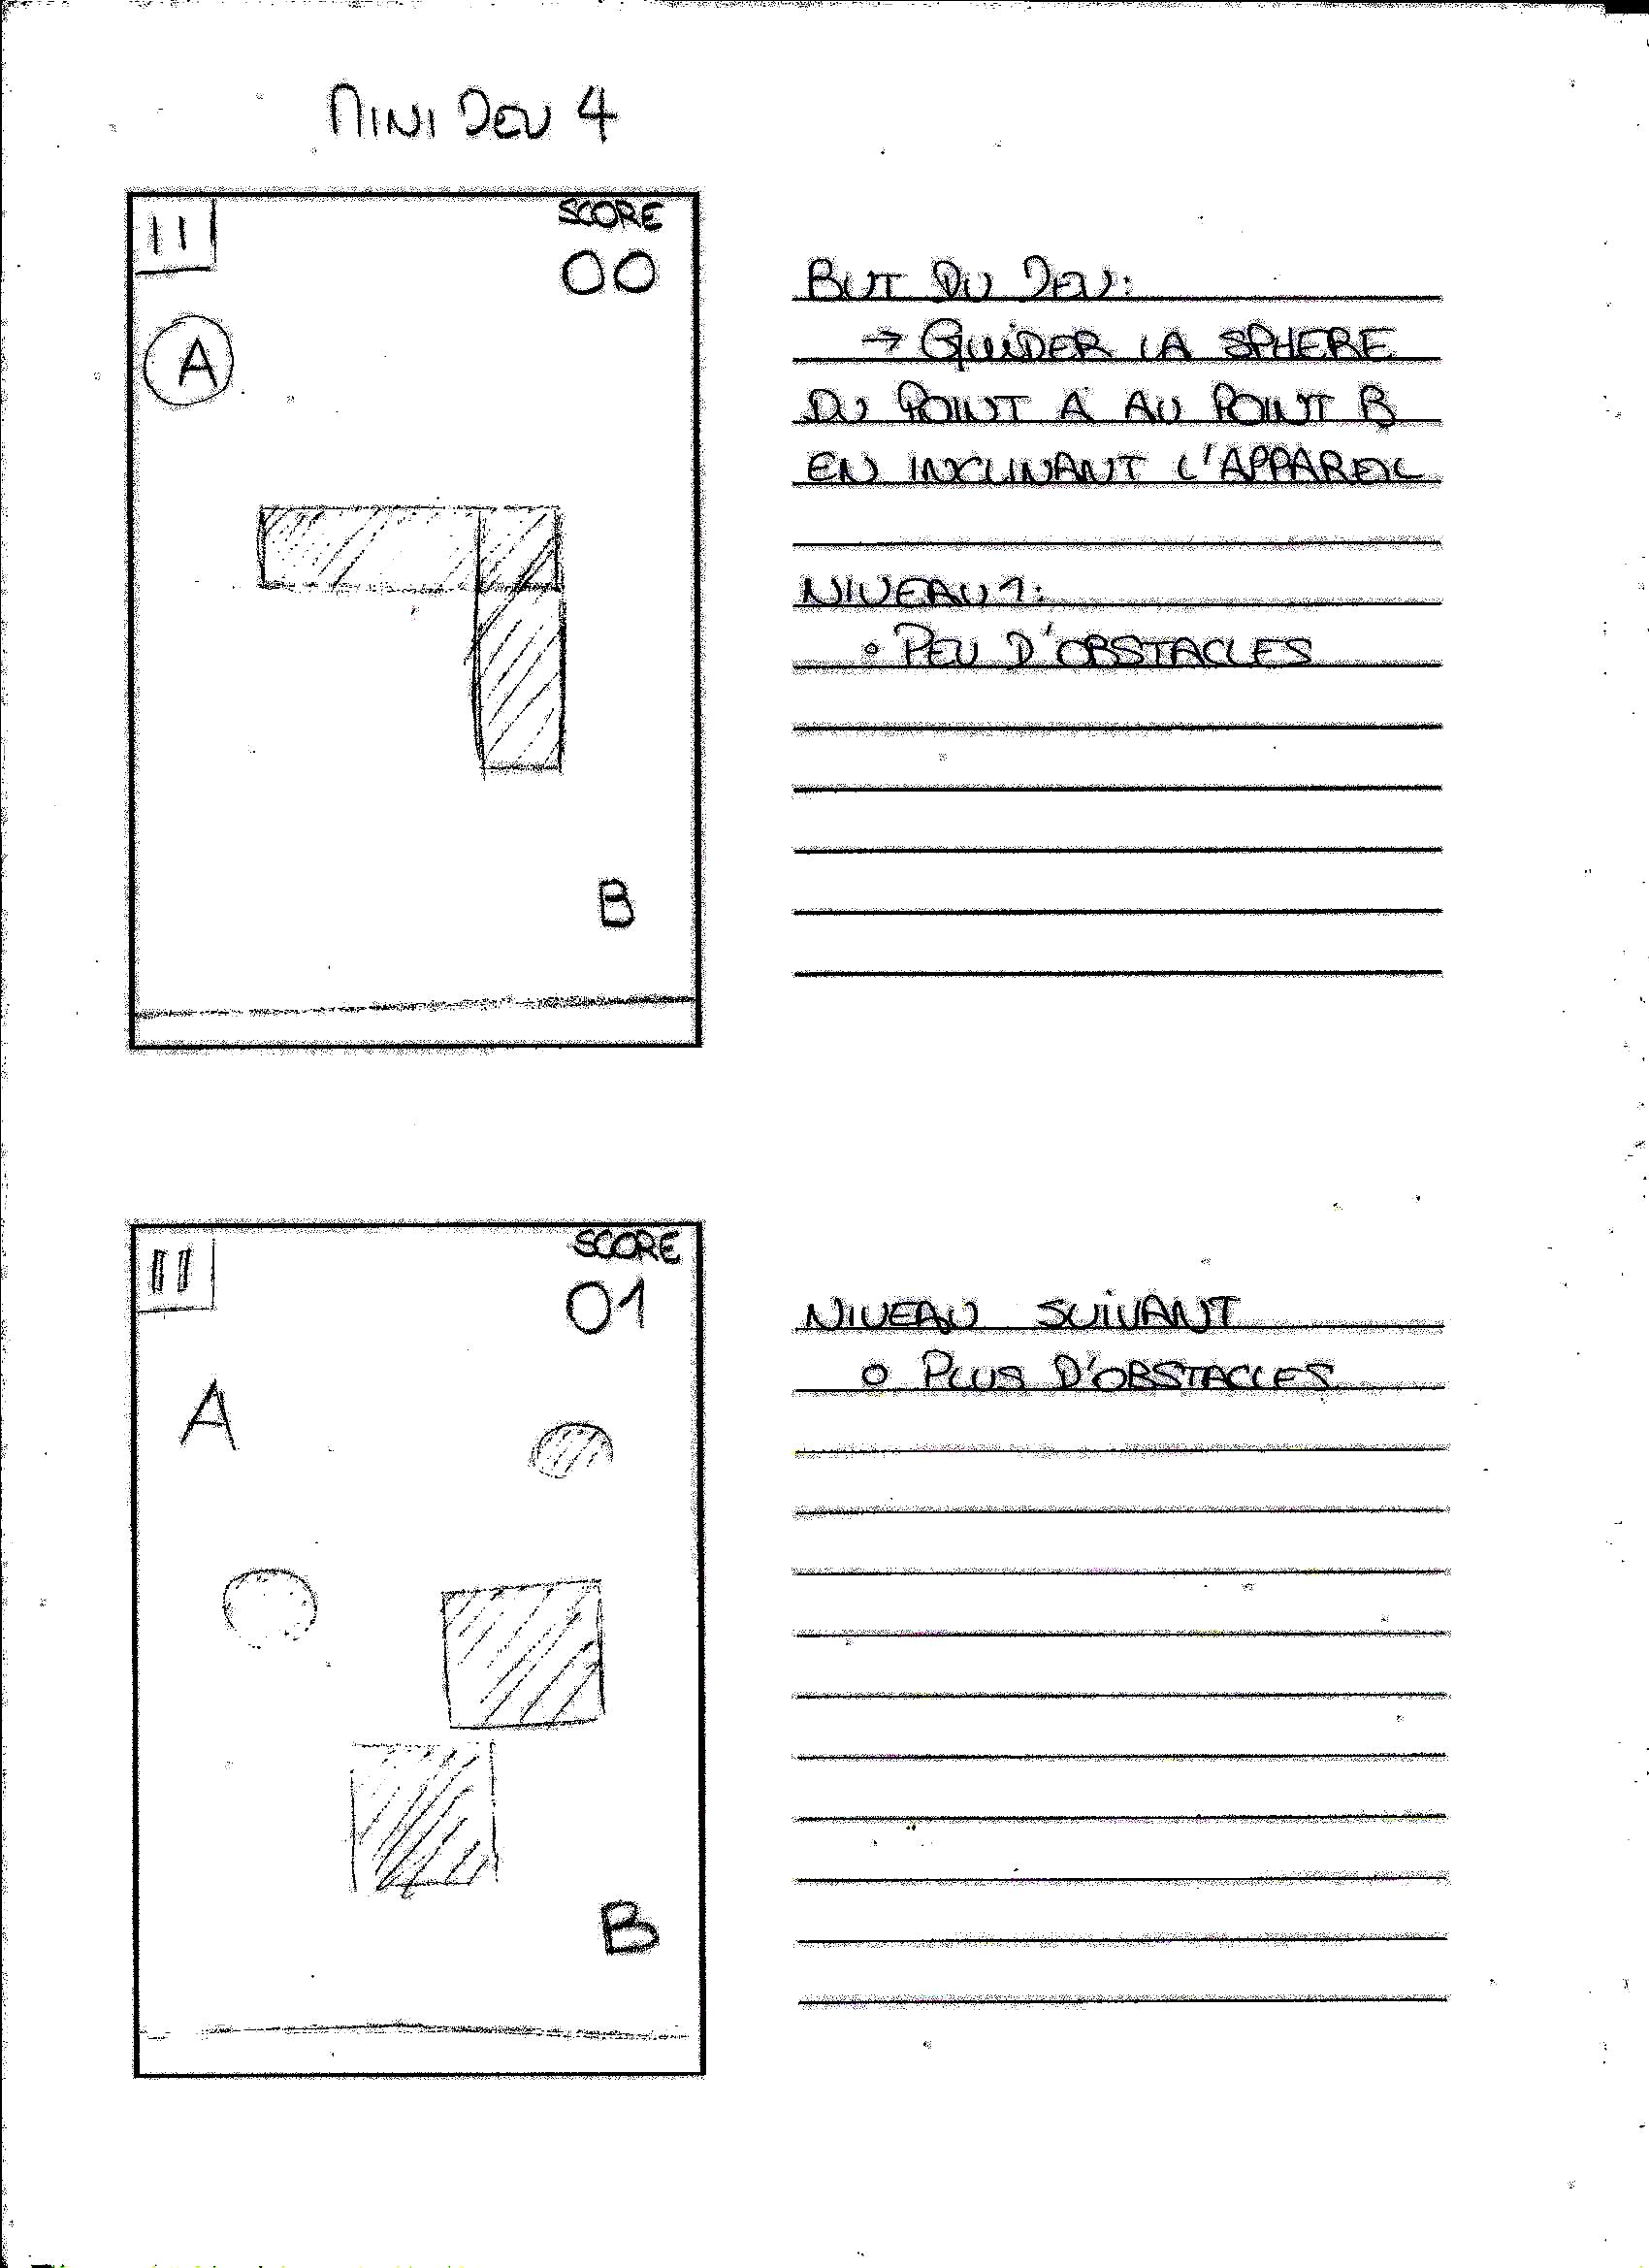 MINI JEU 4
SCORE
00
A
B
BUT DU JEU:
→ GUIDER LA SPHERE
DU POINT A AU POINT B
EN INCLINANT L'APPAREIL
NIVEAU 1:
• PEU D'OBSTACLES
SCORE
01
A
B
NIVEAU SUIVANT
• PLUS D'OBSTACLES